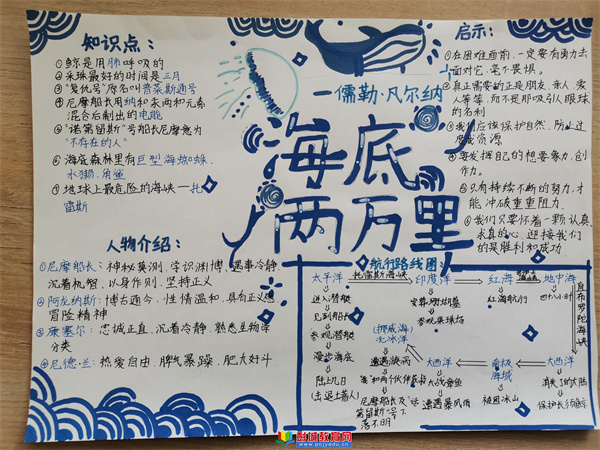 知识点：
①鲸是用肺呼吸的
②采珠最好的时间是三月
③“复仇号”原名叫普莱斯通号
④尼摩船长用钠和东西和元素
混合后制出的电能
⑤“诺第留斯”号船长尼摩意为
“不存在的人”
⑥海底森林里有巨型海蜘蛛、
水獭、角鲨
⑦地球上最危险的海峡—托
雷斯
人物介绍：
①尼摩船长：神秘莫测、学识渊博、遇事冷静、
沉着机智、以身作则、坚持正义
②阿龙纳斯：博古通今、性情温和、具有正义感
冒险精神
③康塞尔：忠诚正直、沉着冷静、熟悉生物学
分类
④尼德·兰：热爱自由、脾气暴躁、肥大好斗
—儒勒·凡尔纳
海底
两万里
启示：
①在困难面前，一定要有勇气去
面对它，毫不畏惧。
②真正需要的正是朋友、亲人、家
人等等，而不是那吸引人眼球
的名利
③我们应该保护自然，防止过
度或资源
④要发挥自己的想要象力，创
作力。
⑤只有持续不断的努力，才
能冲破重重阻力
⑥我们只要怀着一颗认真
求真的心，迎接我们
的是胜利和成功
航行路线图：
太平洋 托雷斯海峡 印度洋 红海 地中海
进入潜艇
见到船长
参观潜艇
漫步海底
陆上九日
参观采珠场
红海航行
四十八小时
直布罗陀海峡
大西洋
消失了的大陆
南极
海域
被困冰山
大西洋
大战章鱼
遭遇暴风雨
(挪威海)
北冰洋
落不明
彭城教育网
www.pcjyedu.cn